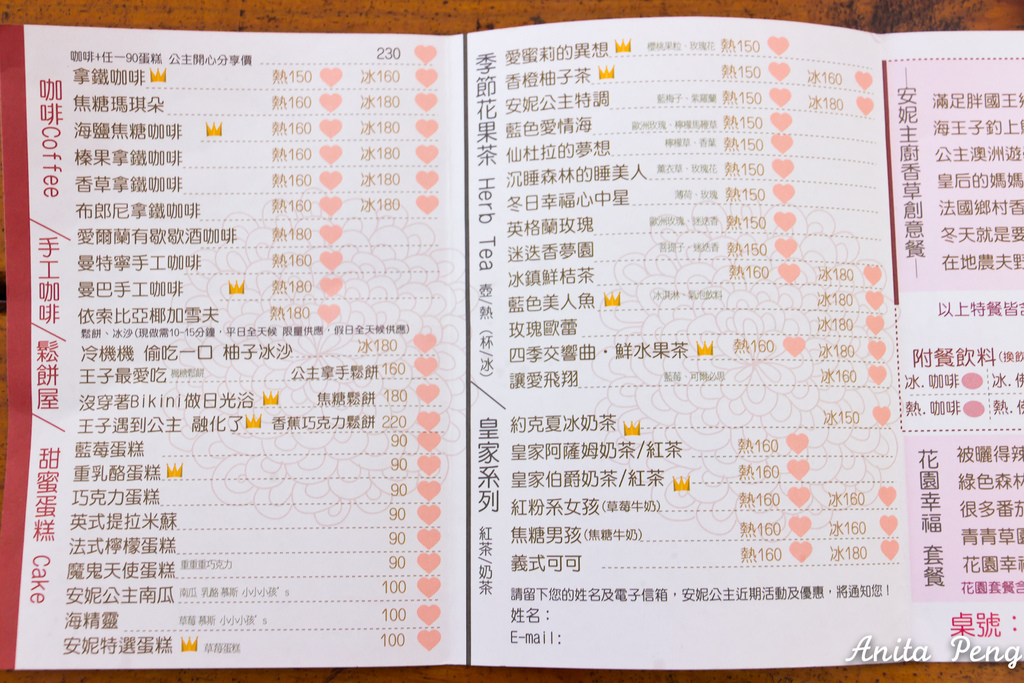 咖啡Coffee
手工咖啡/鬆餅屋
甜蜜蛋糕 Cake
咖啡+任一90蛋糕 公主開心分享價 230
拿鐵咖啡 熱150 冰160
焦糖瑪琪朵 熱160 冰180
海鹽焦糖咖啡 熱160 冰180
榛果拿鐵咖啡 熱160 冰180
香草拿鐵咖啡 熱160 冰180
布郎尼拿鐵咖啡 熱160 冰180
愛爾蘭有歇歇酒咖啡 熱180
曼特寧手工咖啡 熱160
曼巴手工咖啡 熱180
依索比亞椰加雪夫 熱180
鬆餅、冰沙(現做需10-15分鐘，平日全天候 限量供應，假日全天候供應)
冷機機 偷吃一口 柚子冰沙 冰180
王子最愛吃 楓糖鬆餅 公主拿手鬆餅 160
沒穿著Bikini做日光浴 焦糖鬆餅 180
王子遇到公主 融化了 香蕉巧克力鬆餅 220
藍莓蛋糕 90
重乳酪蛋糕 90
巧克力蛋糕 90
英式提拉米蘇 90
法式檸檬蛋糕 90
魔鬼天使蛋糕 重重重巧克力 90
安妮公主南瓜 南瓜 乳酪 慕斯 小小小孩's 100
海精靈 草莓 慕斯 小小小孩's 100
安妮特選蛋糕 草莓蛋糕 100
季節花果茶 Herb Tea 壺/熱 (杯/冰)
皇家系列 紅茶奶茶
愛蜜莉的異想 櫻桃果粒、玫瑰花 熱150
香橙柚子茶 熱150 冰160
安妮公主特調 藍梅子、紫羅蘭 熱150 冰180
藍色愛情海 歐洲玫瑰、檸檬馬鞭草 熱150
仙杜拉的夢想 檸檬草、香葉 熱150
沉睡森林的睡美人 薰衣草、玫瑰花 熱150
冬日幸福心中星 薄荷、玫瑰 熱150
英格蘭玫瑰 歐洲玫瑰、迷迭香 熱150
迷迭香夢園 菩提子、迷迭香 熱150
冰鎮鮮桔茶 熱160 冰180
藍色美人魚 冰淇淋、氣泡飲料 冰180
玫瑰歐蕾 冰180
四季交響曲・鮮水果茶 熱160 冰180
讓愛飛翔 藍莓、可爾必思 冰160
約克夏冰奶茶 冰150
皇家阿薩姆奶茶/紅茶 熱160
皇家伯爵奶茶/紅茶 熱160
紅粉系女孩(草莓牛奶) 熱160 冰160
焦糖男孩(焦糖牛奶) 熱160 冰160
義式可可 熱160 冰180
請留下您的姓名及電子信箱，安妮公主近期活動及優惠，將通知您！
姓名：
E-mail:
安妮主廚香草創意餐
滿足胖國王
海王子釣上
公主澳洲遊
皇后的媽媽
法國鄉村香
冬天就是要
在地農夫野
以上特餐皆
附餐飲料(換飲
冰.咖啡 冰.
熱.咖啡 熱.
花園幸福 套餐
被曬得辣
綠色森林
很多番茄
青青草
花園幸福
花園套餐含
桌號：
Anita Peng